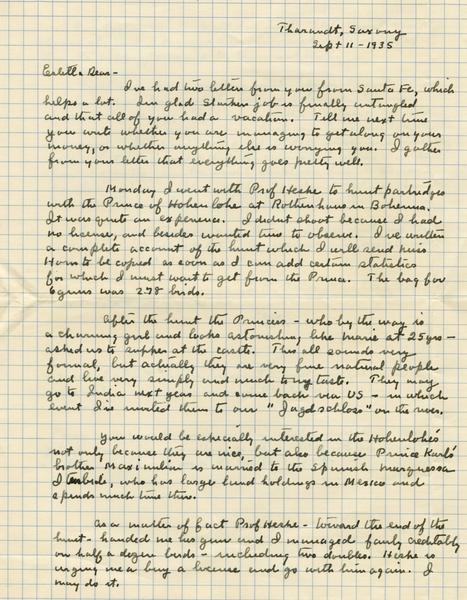 Tharandt, Saxony
Sept 11 - 1935
Estella Dear -
I've had two letter from you from Santa Fe, which
helps a lot. I'm glad Starkers job is finally untangled
and that all of you had a vacation. Tell me next time
you write whether you are managing to get along on your
money, or whether anything else is worrying you. I gather
from your letter that everything goes pretty well.
Monday I went with Prof Heske to hunt partridges
with the Prince of Hohenlohe at Rothenhaus in Bohemia.
It was quite an experience. I didnt shoot because I had
no license, and besides wanted time to observe. I've written
a complete account of the hunt which I will send Miss
Horn to be copied as soon as I can add certain statistics
for which I must wait to get from the Prince. The bag for
6 guns was 278 birds.
After the hunt the Princess - who by the way is
a charming girl and looks astonishing like Marie at 25 yrs -
asked us to supper at the castle. This all sounds very
formal, but actually they are very fine natural people
and live very simply and much to my taste. They may
go to India next year and come back via US - in which
event I've invited them to our "Jagdschloss" on the river.
You would be especially interested in the Hohenlohe's
not only because they are nice, but also because Prince Karls'
brother Maximilian is married to the Spanish Marquessa
Iturbide, who has large land holdings in Mexico and
spends much time there.
As a matter of fact Prof Heske - toward the end of the
hunt - handed me his gun and I managed fairly creditably
on half a dozen birds - including two doubles. Heske is
urging me a buy a license and go with him again. I
may do it.